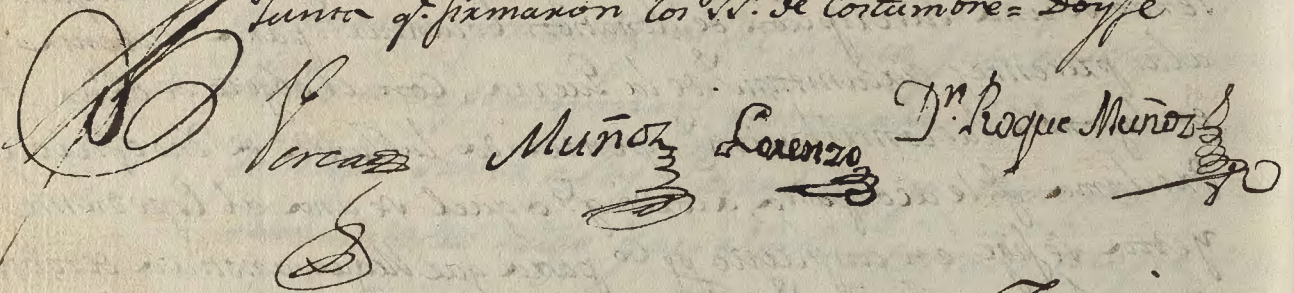 Junta q.e firmaron los SS.s de Costumbre = Doy fe
Muñoz Lorenzo Dn. Roque Muñoz